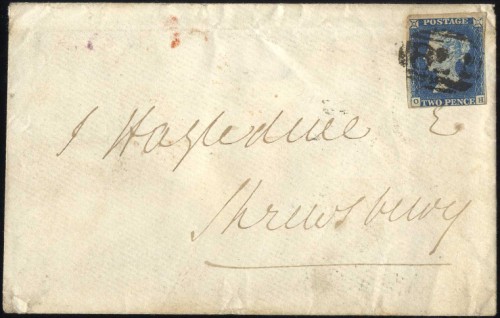 POSTAGE
TWO PENCE
J Hazledine E
Shrewsbury